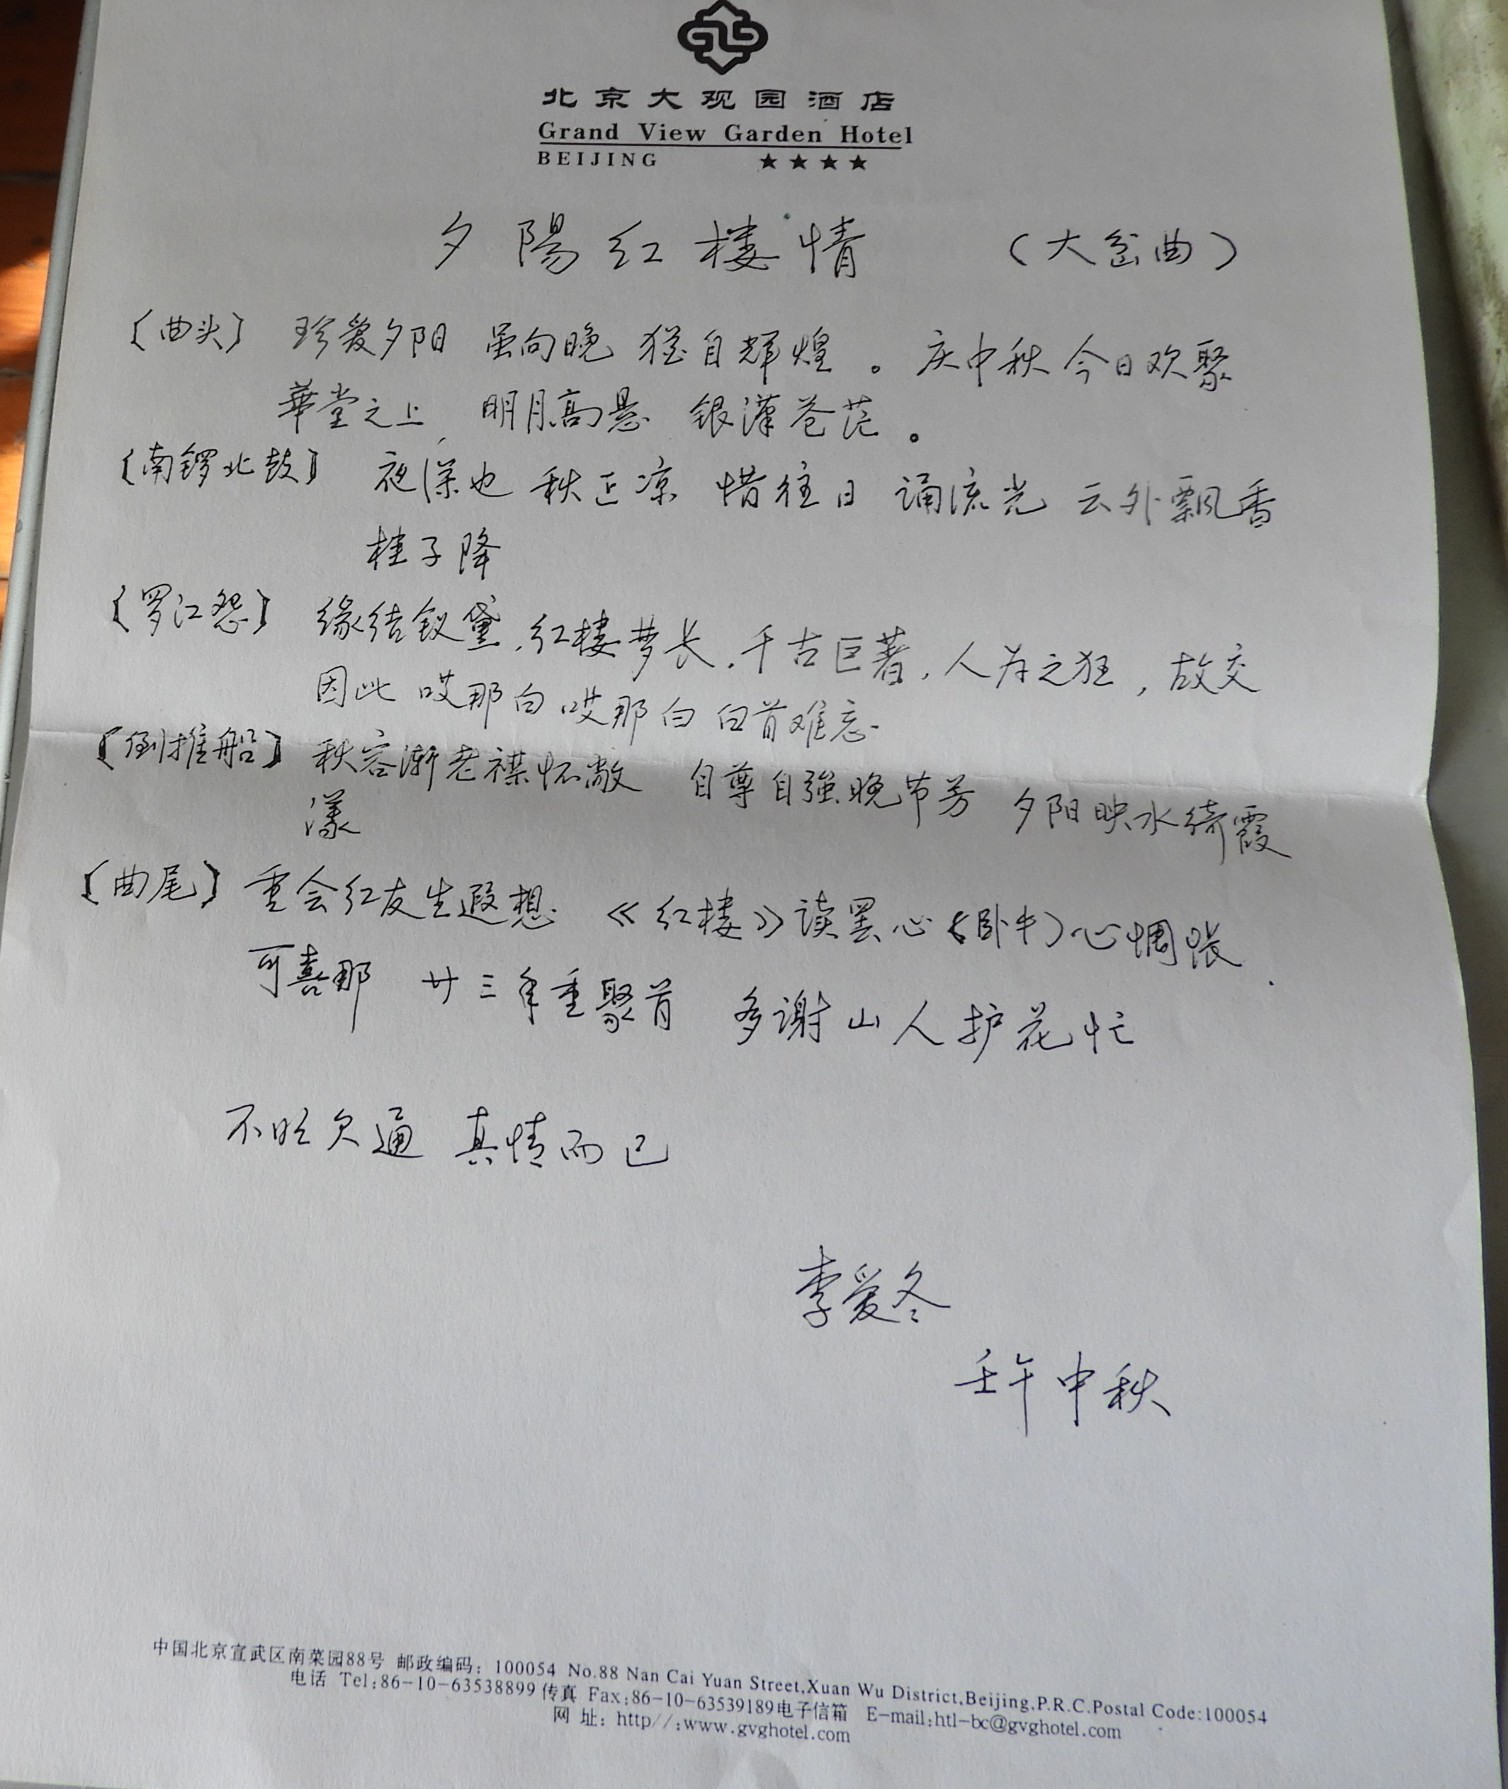 北京大观园酒店
Grand View Garden Hotel
BEIJING ★★★★
夕陽红楼情 （大岔曲）
〔曲头〕 珍爱夕阳 虽向晚 犹自辉煌。庆中秋 今日欢聚
華堂之上，明月高悬 银漢苍茫。
〔南锣北鼓〕 夜深也 秋正凉 惜往日 诵流光 云外飘香
桂子降
〔罗江怨〕 缘结钗黛，红楼梦长，千古巨著，人为之狂，故交
因此 哎那白 哎那白 白首难忘
〔倒推船〕 秋容渐老襟怀敞 自尊自强晚节芳 夕阳映水绮霞
漾
〔曲尾〕 重会红友生遐想 《红楼》读罢心（卧牛）心惆怅
可喜那 廿三年重聚首 多谢山人护花忙
不 欠通 真情而已
李爱冬
壬午中秋
中国北京宣武区南菜园88号 邮政编码：100054 No.88 Nan Cai Yuan Street,Xuan Wu District,Beijing,P.R.C.Postal Code:100054
电话 Tel:86-10-63538899 传真 Fax:86-10-63539189 电子信箱 E-mail:htl-bc@gvghotel.com
网 址: http//:www.gvghotel.com